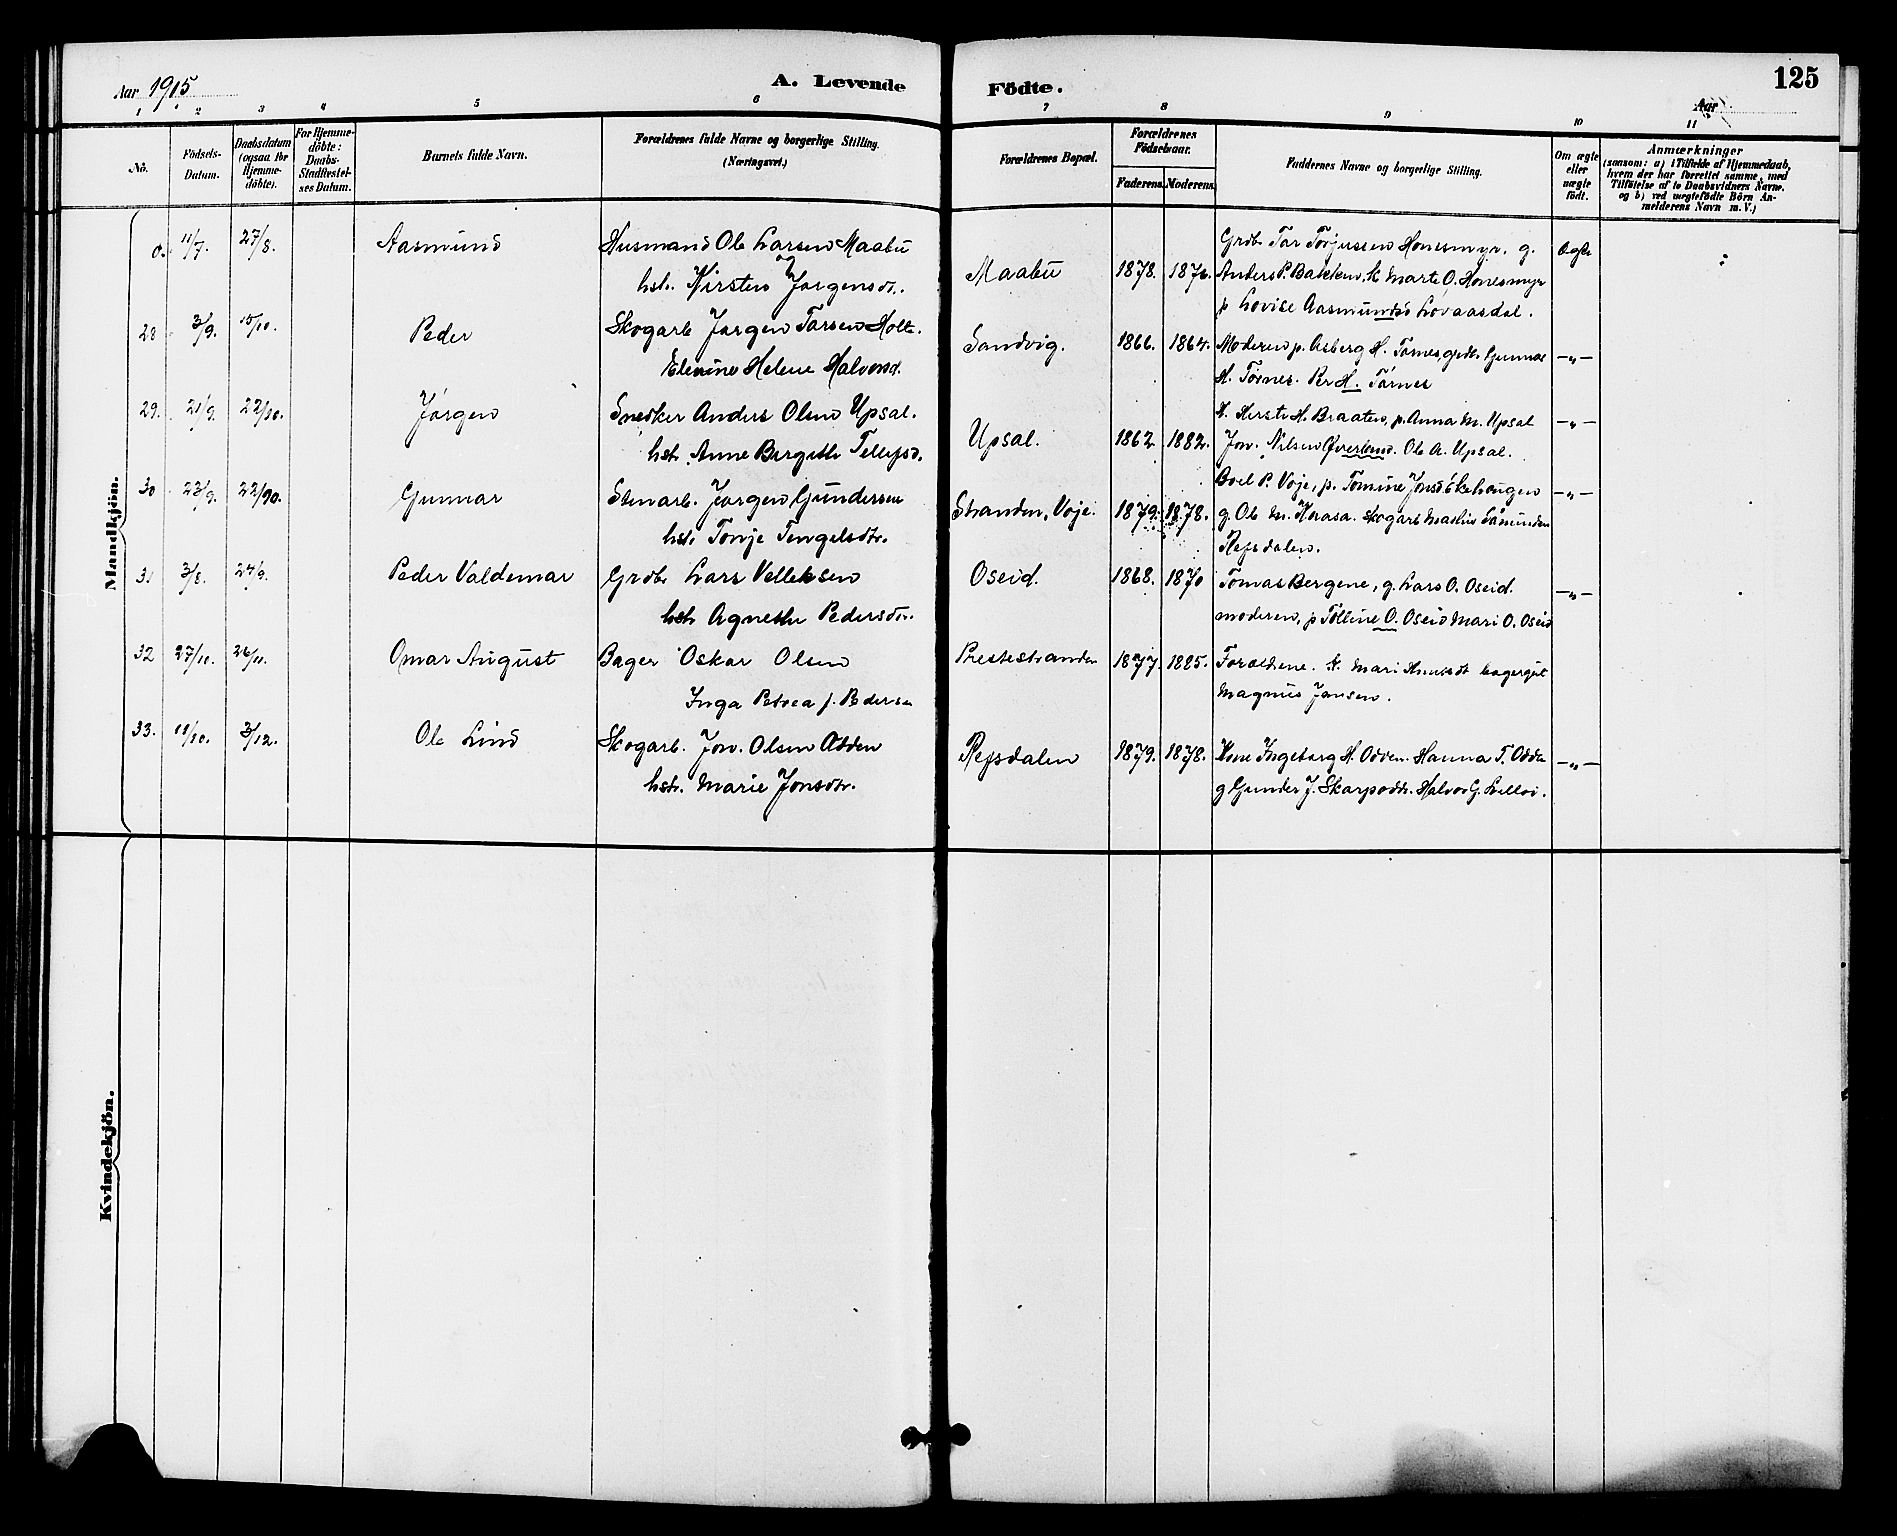 125
Aar 1915
A. Levende Födte.
Aar
1 2 3 4 5 6 7 8 9 10 11
No.
Födsels-Datum.
Daabsdatum (ogsaa for Hjemme-döbte).
For Hjemme-döbte: Daabs-Stadfæstel-ses Datum.
Barnets fulde Navn.
Forældrenes fulde Navne og borgerlige Stilling.
(Næringsvei.)
Forældrenes Bopæl.
Forældrenes Födselsaar.
Faderens. Moderens.
Faddernes Navne og borgerlige Stilling.
Om ægte eller uægte födt.
Anmærkninger
(saasom: a) i Tilfælde af Hjemmedaab, hvem der har forrettet samme, med Tilföielse af to Daabsvidners Navne. og b) ved uægtefödte Börn An-melderens Navn m. V.)
Mandkjön.
0. 11/7. 27/8. Aasmund Husmand Ole Larsen Maabu
hst. Kirsten Jørgensdtr. Maabu 1878. 1876.
Grdbr Tar Torjussen Honesmyr. g.
Anders P. Bakken, k Marte O. Honesmyr
p Lovise Aasmundsd Lovaasdal. Ægte
28 3/9. 15/10. Peder Skogarb Jørgen Tarsen Holte.
Elevine Helene Halvorsd. Sandvig. 1866. 1864.
Moderen p. Asberg H. Tørnes, grdb. Gunnar
H. Tørnes. Per H. Tørnes —„—
29. 21/9. 22/10. Jørgen Snedker Anders Olsen Upsal.
hst. Anne Birgitte Tellefsd. Upsal. 1862 1882.
K. Kirsti H. Braaten, p. Anna M. Upsal
Jon. Nilsen Øverland. Ole A. Upsal. —„—
30 23/9. 22/10. Gunnar Stenarb. Jørgen Gundersen
hst. Tonje Tengelsdtr. Stranden, Voje. 1879. 1878.
Boel P. Voje, p. Tomine Jonsd
g. Ole M. Skogarb
Refsdalen. —„—
31 3/8. 24/9. Peder Valdemar Grdbr Lars Velleksen
hst Agnethe Pedersdtr. Oseid. 1868. 1870
Tomas Bergene, g. Lars O. Oseid.
moderen, p Tølline O. Oseid Mari O. Oseid —„—
32 27/10. 26/11. Omar August Bager Oskar Olsen
Inga Petrea f. Pedersen Prestestranden 1877. 1885.
Forældrene. k. Mari
Magnus Jansen.
33. 11/10. 3/12. Ole Lind Skogarb. Jon. Olsen Odden
hstr. Marie Jonsdtr. Refsdalen 1879. 1878.
Kone Ingeborg H. Odden. Hanna T. Odden
g Gunder J. Skarpodde. Halvor G. —„—
Kvindekjön.